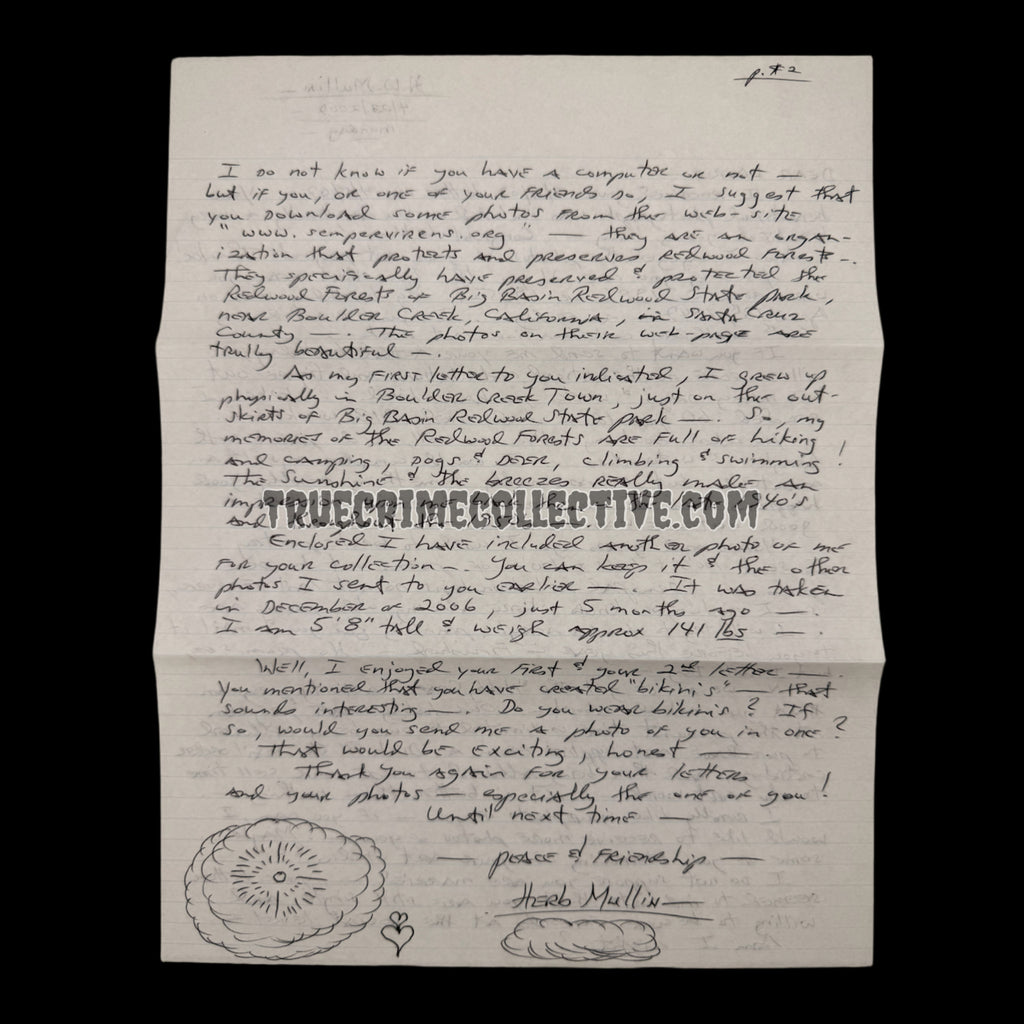 p. #2
I do not know if you have a computer or not —
but if you, or one of your friends do, I suggest that
you download some photos from the web-site
"www.sempervirens.org" — they are an organ-
ization that protects and preserves redwood forests —.
They specifically have preserved & protected the
Redwood Forests of Big Basin Redwood State park,
near Boulder Creek, California, in Santa Cruz
County —. The photos on their web-page are
trully beautiful —.
As my first letter to you indicated, I grew up
physically in Boulder Creek Town, just on the out-
skirts of Big Basin Redwood State park —. So, my
memories of the Redwood Forests are full of hiking
and camping, dogs & deer, climbing & swimming!
The sunshine & the breezes really make an
1940's
TRUECRIMECOLLECTIVE.COM
and
Enclosed I have included another photo of me
for your collection —. You can keep it & the other
photos I sent to you earlier —. It was taken
in December of 2006, just 5 months ago —.
I am 5'8" tall & weigh approx 141 lbs —.
Well, I enjoyed your first & your 2nd letter —.
You mentioned that you have created "bikini's" — that
sounds interesting —. Do you wear bikinis? If
so, would you send me a photo of you in one?
That would be exciting, honest —.
Thank you again for your letters
and your photos — especially the one of you!
Until next time —
— peace & friendship —
Herb Mullin —